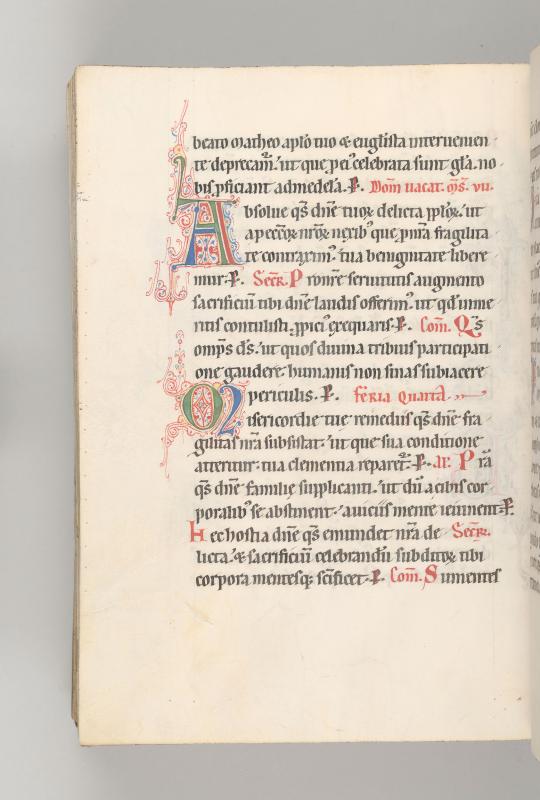 beato matheo aplo tuo & euglista intervenien
te deprecam̃. ut que p ei' celebrata sunt gl̃a. no
bis pficiant ad medelã. P. Dom̃ uacat. q̃s. vii.
Absolue q̃s dñe tuoꝝ delicta pploꝝ. ut
a peccoꝝ nr̃oꝝ nexib' que p nr̃a fragilita
te contraxim'. tua benignitate libere
mur. P. Secr̃. Pro nr̃e seruitutis augmento
sacrificiũ tibi dñe laudis offerim'. ut qd̃ inme
ritis contulisti. ppici' exequaris. P. Com̃. Q̃s
omps d̃s. ut quos diuina tribuis participati
one gaudere. humanis non sinas subiacere
periculis. P. feria quarta
Misericordie tue remediis q̃s dñe fra
gilitas nr̃a subsistat. ut que sua conditione
atteritur. tua clementia reparet̃. P. al'. Pr̃a
q̃s dñe familie supplicanti. ut dũ a cibis cor
poralib' se abstinent. a uiciis mente ieiunent. P.
Hec hostia dñe q̃s emundet nr̃a de Secr̃.
licta. & sacrificiũ celebrandũ subditoꝝ tibi
corpora mentesqꝫ sc̃ificet. P. Com̃. Sumentes